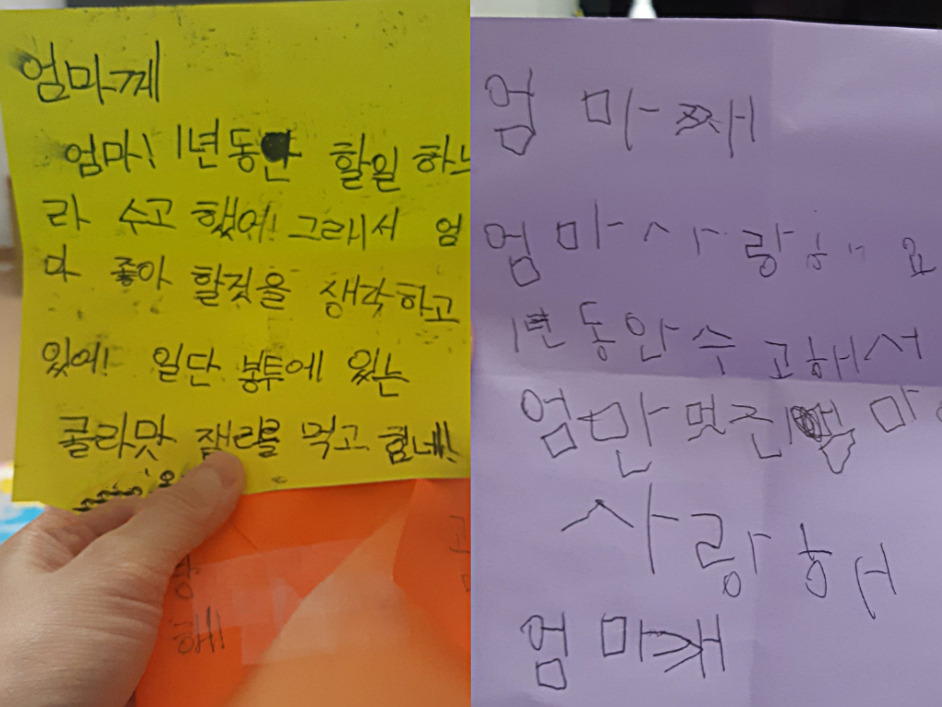 엄마께
엄마! 1년동안 할일 하느
라 수고 했어! 그래서 엄
마 좋아 할것을 생각하고
있어! 일단 봉투에 있는
콜라맛 잴리를 먹고 힘네!
해!
엄 마 깨
엄 마 사 랑 해 요
1년 동 안 수 고 해 서
엄 만 멋 진 마
사 랑 해
엄 마 깨